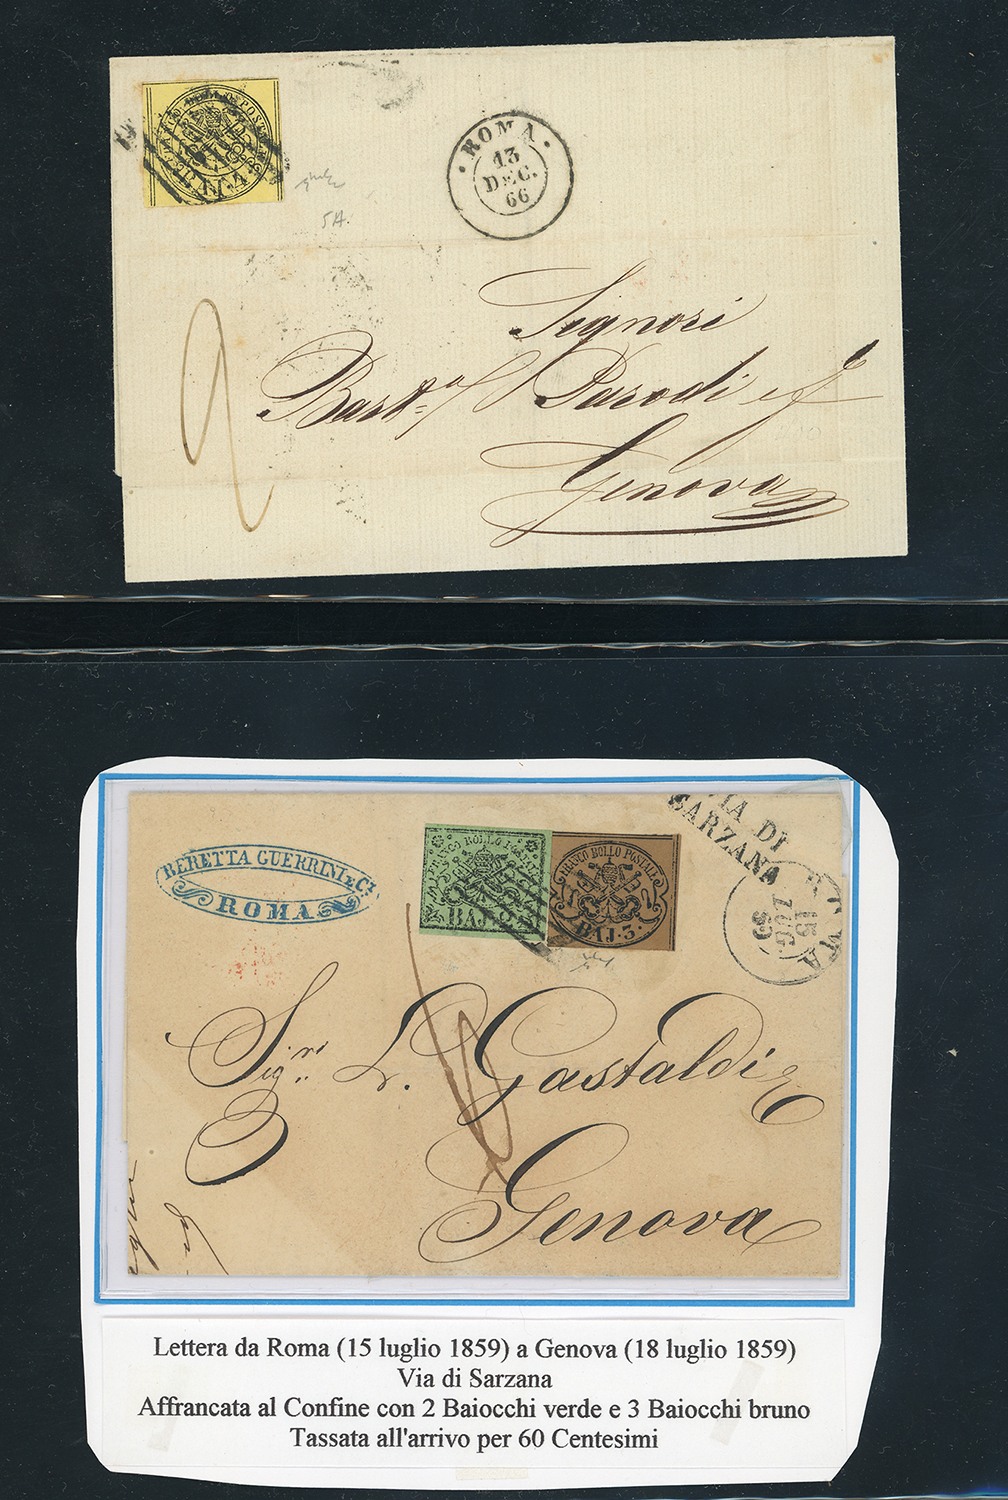 BAJ
· ROMA ·
13
DEC.
66
5A.
2
Signori
Bart.ª Parodi e f
Genova
VIA DI
SARZANA
BERETTA GUERRINI & Cᵢ
ROMA
FRANCO BOLLO POSTALE
BAJ. 2
FRANCO BOLLO POSTALE
BAJ. 3.
ROMA
15
LUG.
59
Sig.ri L. Gastaldi
Genova
Lettera da Roma (15 luglio 1859) a Genova (18 luglio 1859)
Via di Sarzana
Affrancata al Confine con 2 Baiocchi verde e 3 Baiocchi bruno
Tassata all'arrivo per 60 Centesimi